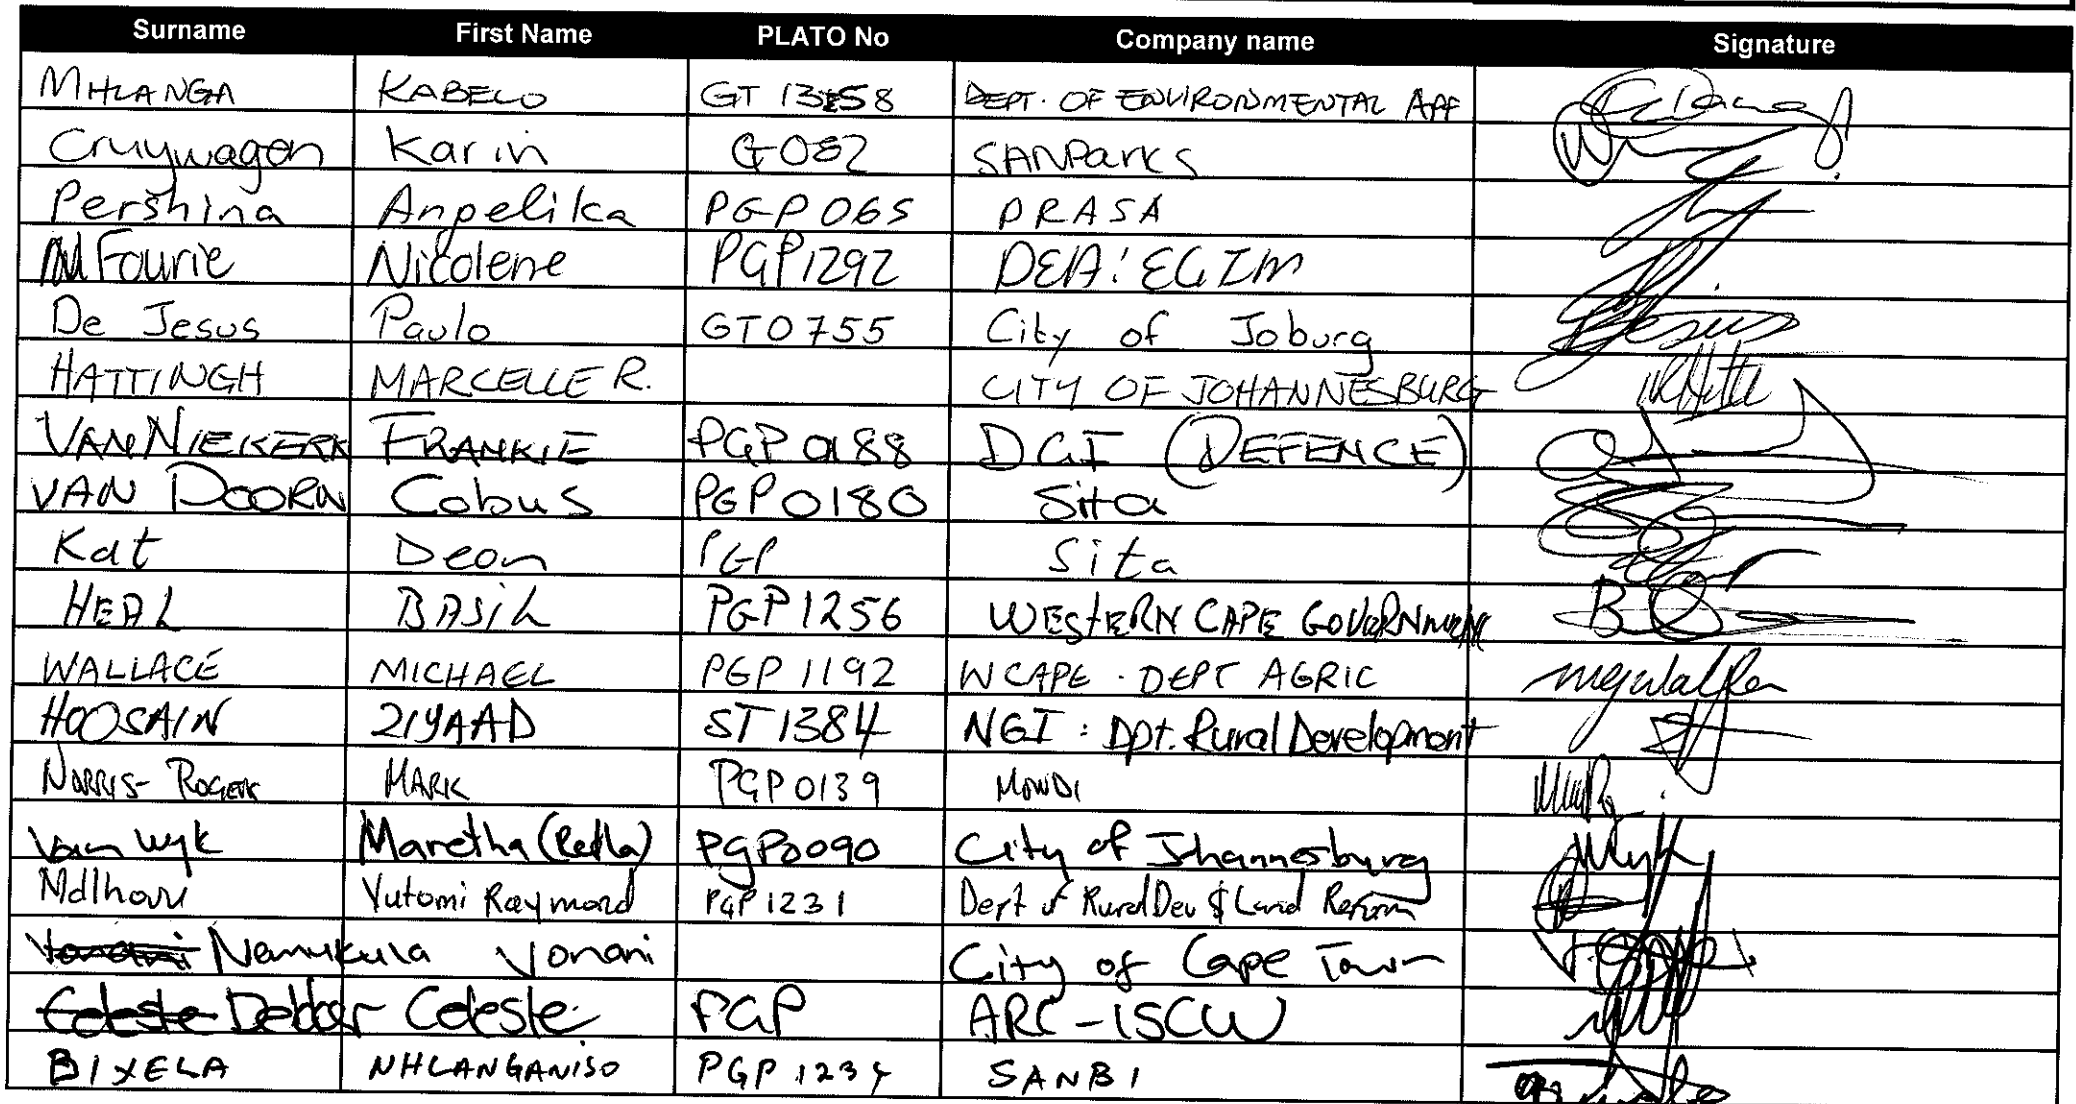 Surname First Name PLATO No Company name Signature
MHLANGA KABELO GT 13158 DEPT. OF ENVIRONMENTAL AFF
Cruywagen Karin G082 SANParks
Pershina Anpelika PGP065 PRASA
Fourie Nicolene PGP1292 DEA: EGIM
De Jesus Paulo GT0755 City of Joburg
HATTINGH MARCELLE R. CITY OF JOHANNESBURG
VAN NIEKERK FRANKIE PGP 0188 DGI (DEFENCE)
VAN DOORN Cobus PGP0180 Sita
Kat Deon PGP Sita
HEAL BASIL PGP1256 WESTERN CAPE GOVERNMENT
WALLACE MICHAEL PGP 1192 W CAPE . DEPT AGRIC
HOOSAIN ZIYAAD ST1384 NGI : Dpt. Rural Development
NORRIS-ROGERS MARK PGP0139 MONDI
van Wyk Maretha (Retha) PGP0090 City of Jhannesburg
Mdlhovu Vutomi Raymond PGP1231 Dept of Rural Dev & Land Reform
Nemukula Vonani City of Cape Town
Celeste Dekker Celeste PGP ARC-ISCW
BIXELA NHLANGANISO PGP 1234 SANBI